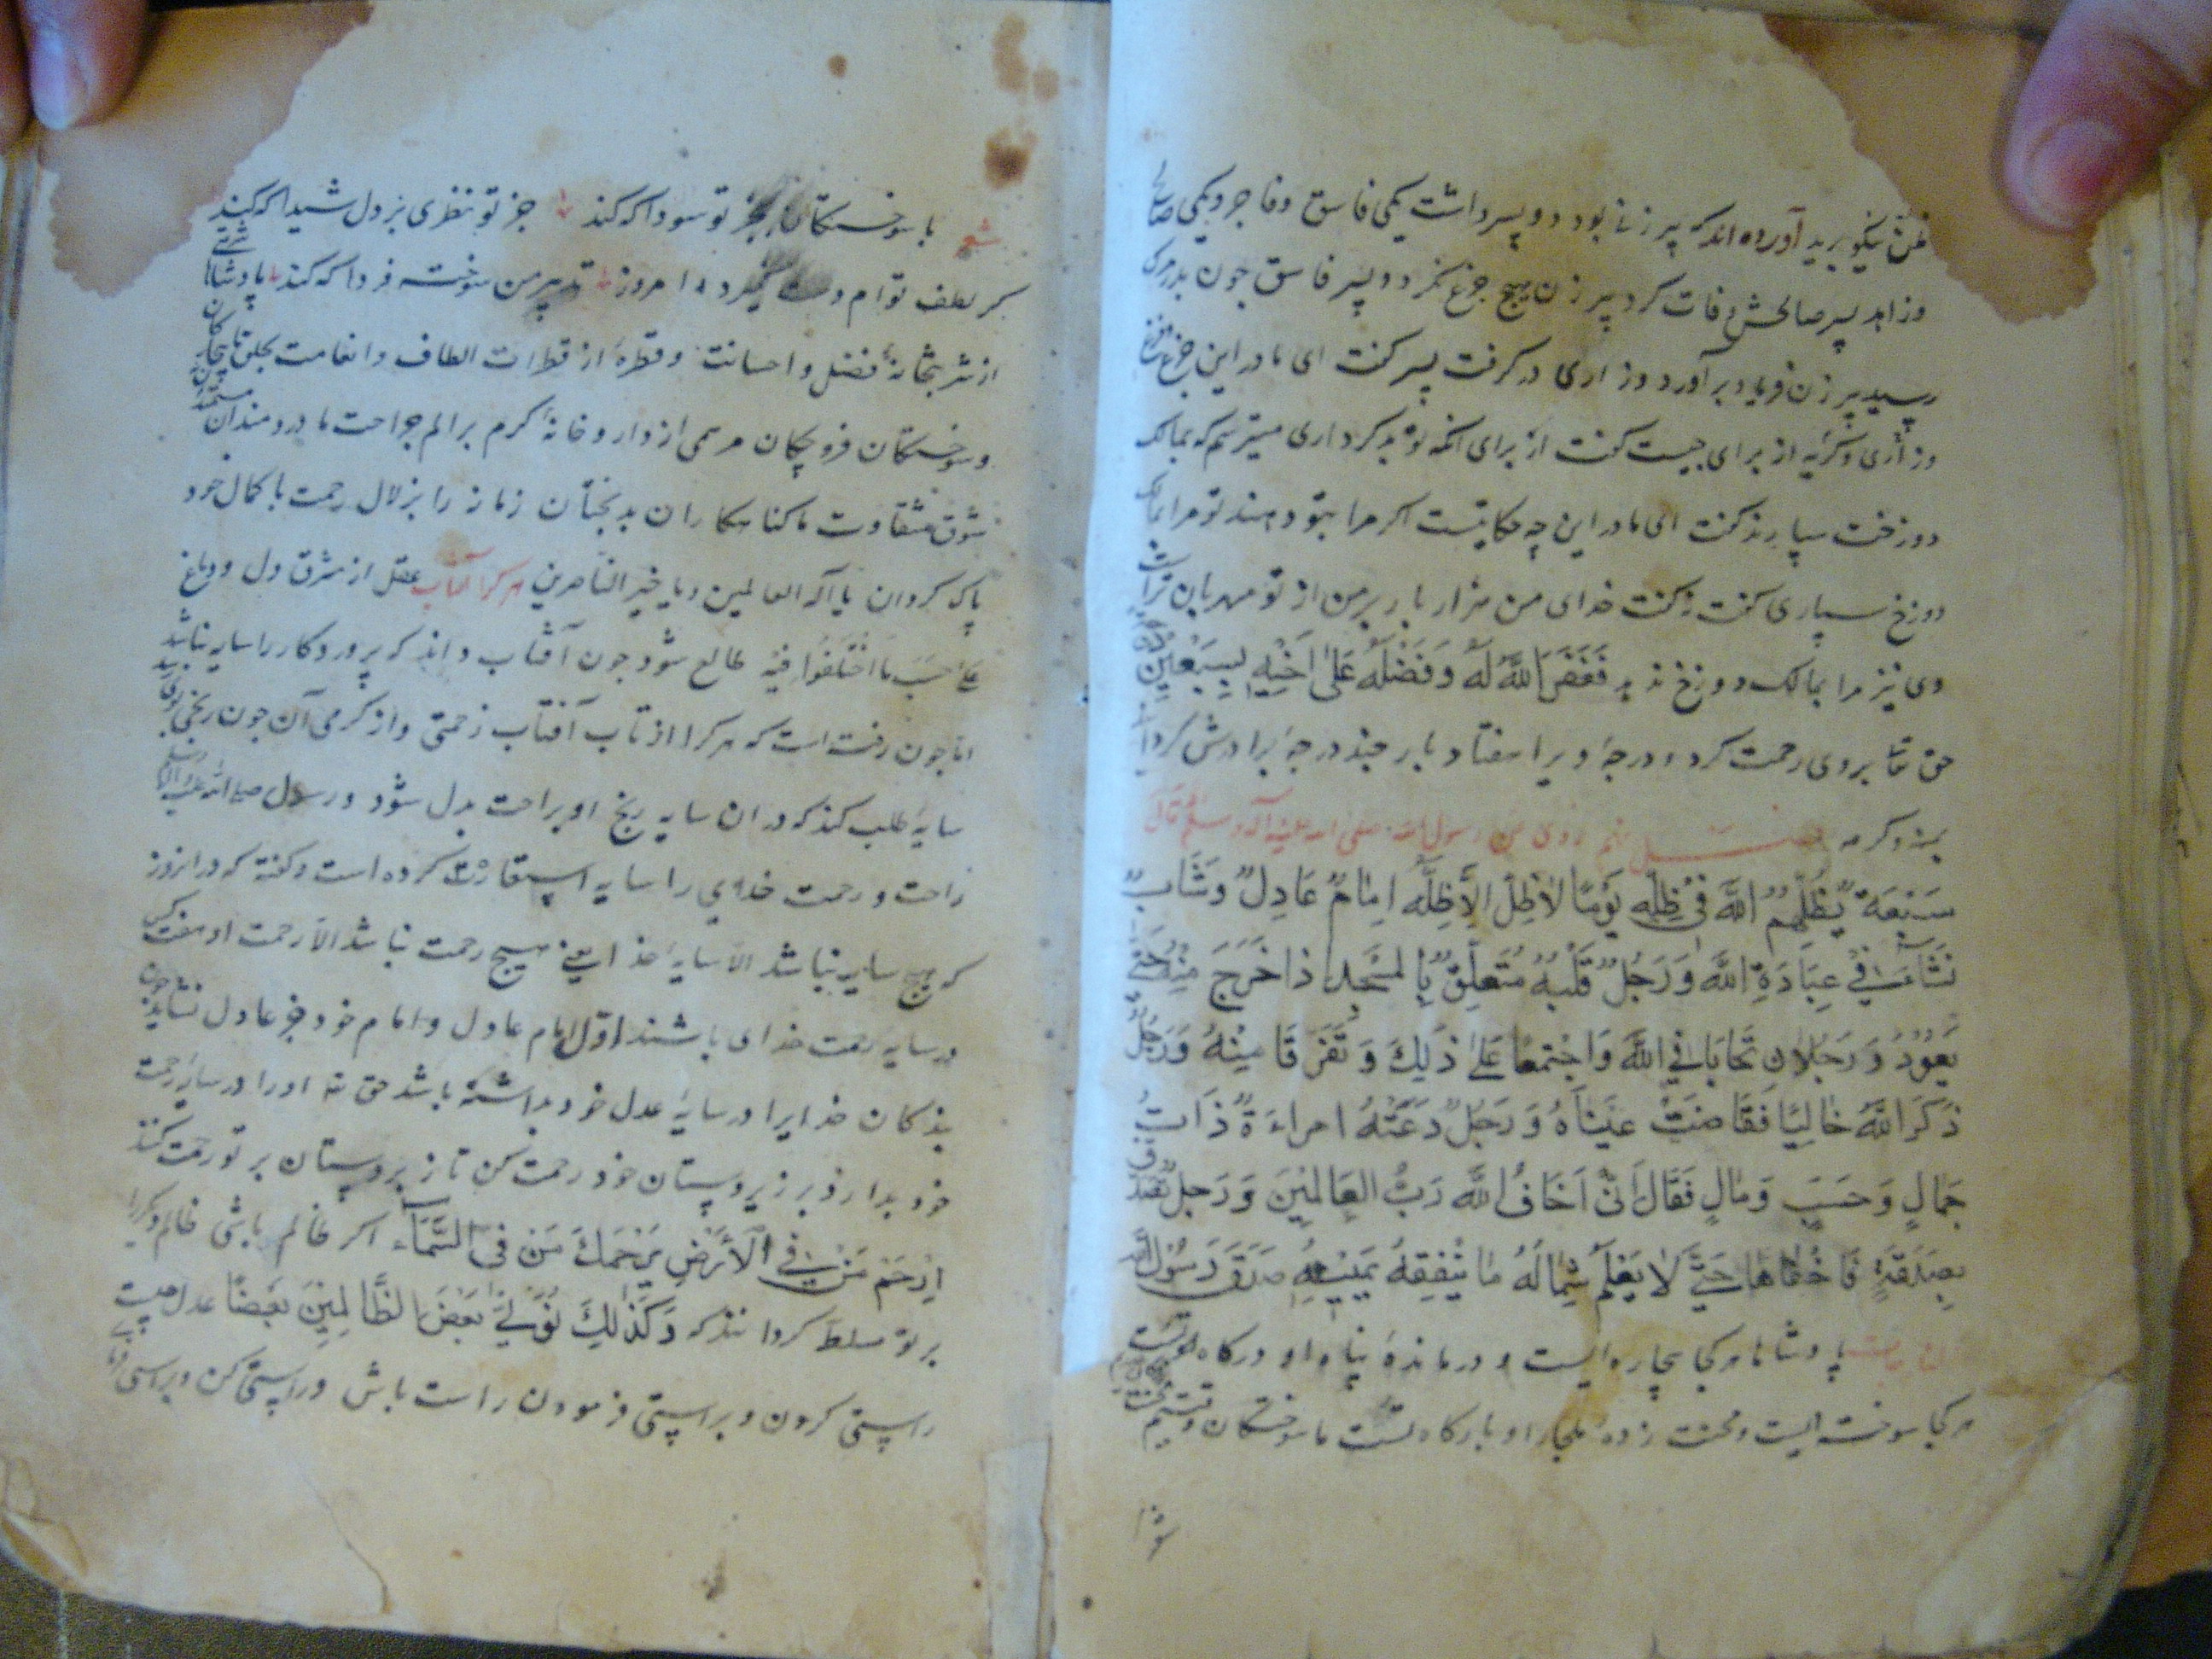 ظن نیکو برید آورده اند که پیر زنی بود دو پسر داشت یکی فاسق و فاجر و یکی صالح
و زاهد پسر صالحش وفات کرد پیر زن هیچ جزع نکرد و پسر فاسق چون بدر مرک
رسید پیر زن فریاد بر آورد و زاری در کرفت پسر کفت ای مادر این جزع و فزع
و زاری و کریه از برای چیست کفت از برای آنکه تو بد کرداری میترسم که بمالک
دوزخت سپارند کفت ای مادر این چه حکایتست اکر مرا بتو دهند تو مرا بمالک
دوزخ سپاری کفت نه کفت خدای من هزار بار بر من از تو مهربان تر است
وی نیز مرا بمالک دوزخ ندهد فَغَفَرَ اللَّهُ لَهُ وَفَضَّلَهُ عَلَى اَخِيهِ بِسَبْعِينَ
حق تعا بر وی رحمت کرد و درجهٔ ویرا هفتاد بار چند درجهٔ برادرش کرد
بمنه و کرمه روی عن رسول الله صلی الله علیه و آله وسلم قال
سَبْعَةٌ يُظِلُّهُمُ اللَّهُ فِي ظِلِّهِ يَوْمًا لَا ظِلَّ اِلَّا ظِلُّهُ اِمَامٌ عَادِلٌ وَشَابٌّ
نَشَأَ فِي عِبَادَةِ اللَّهِ وَرَجُلٌ قَلْبُهُ مُتَعَلِّقٌ بِالْمَسْجِدِ اِذَا خَرَجَ مِنْهُ حَتَّى
يَعُوْدَ وَرَجُلَانِ تَحَابَا فِي اللَّهِ وَاجْتَمَعَا عَلَى ذَلِكَ وَتَفَرَّقَا مِنْهُ وَرَجُلٌ
ذَكَرَ اللَّهَ خَالِيًا فَفَاضَتْ عَيْنَاهُ وَرَجُلٌ دَعَتْهُ امراءَةٌ ذَاتُ
جَمَالٍ وَحَسَبٍ وَمَالٍ فَقَالَ اِنِّي اَخَافُ اللَّهَ رَبَّ العَالَمِينَ وَرَجُلٌ تَصَدَّقَ
بِصَدَقَةٍ فَاَخْفَاهَا حَتَّى لَا يَعْلَمَ شِمَالُهُ مَا يُنْفِقُهُ يَمِينُهُ صَدَقَ رَسُولُ اللَّه
پادشاها هر کجا بیچاره ایست و درماندهٔ پناه او درکاه تست
هر کجا سوخته ایست و محنت زدهٔ ملجاء او بارکاه تست ما سوختکان
شعر با سوختکان بجز تو سودا که کند جز تو نظری بر دل شیدا که کند
کر لطف تو ام دست نکیرد امروز تدبیر من سوخته فردا که کند پادشاها شربتی
از شربتخانهٔ فضل و احسانت و قطرهٔ از قطرات الطاف و انعامت بحلق
و سوختکان فروچکان مرهمی از دارو خانهٔ کرم بر الم جراحت ما دردمندان
شوق شقاوت ما کناهکاران بدبختان زمانه را بزلال رحمت با کمال خود
پاک کردان یا آله العالمین و یا خیر الناصرین هر کرا آفتاب عقل از مشرق دل و دماغ
علی حسب ما اختلفوا فیه طالع شود چون آفتاب داند که پروردکار را سایه نباشد
اما چون رفته است که هر کرا از تاب آفتاب زحمتی و از کرمی آن چون رنجی
سایهٔ طلب کند که در ان سایه رنج او براحت بدل شود و رسول صلی الله علیه
راحت و رحمت خدای را سایه استعارت کرده است و کفته که در انروز
که هیچ سایه نباشد الا سایهٔ خدا یعنی هیچ رحمت نباشد الا رحمت او هفت کس
در سایهٔ رحمت خدای باشند اوّل امام عادل و امام خود جز عادل نشاید چون
بندکان خدایرا در سایهٔ عدل خود بداشته باشد حق ته او را در سایهٔ رحمت
خود بدارد بر زیردستان خود رحمت کن تا زبردستان بر تو رحمت کنند
اِرْحَمْ مَنْ فِي الْأَرْضِ يَرْحَمْكَ مَنْ فِي السَّمَاءِ اکر ظالم باشی ظالم دیکر را
بر تو مسلط کردانند که وَكَذَلِكَ نُوَلِّي بَعْضَ الظَّالِمِينَ بَعْضًا عدل چیست
راستی کردن و براستی فرمودن راست باش و راستی کن و براستی فرمای